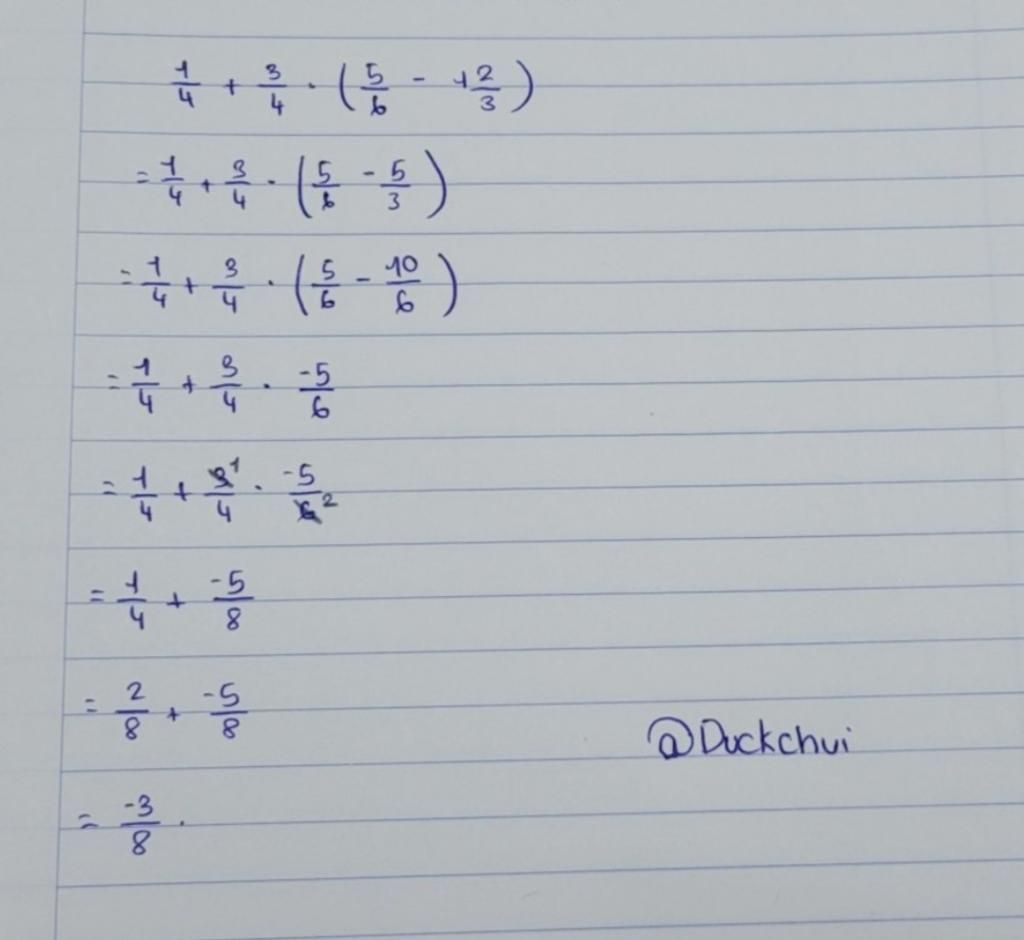 1/4 + 3/4 · (5/6 - 1 2/3)
= 1/4 + 3/4 · (5/6 - 5/3)
= 1/4 + 3/4 · (5/6 - 10/6)
= 1/4 + 3/4 · -5/6
= 1/4 + 3̶¹/4 · -5/6̶²
= 1/4 + -5/8
= 2/8 + -5/8
@Duckchui
= -3/8 .